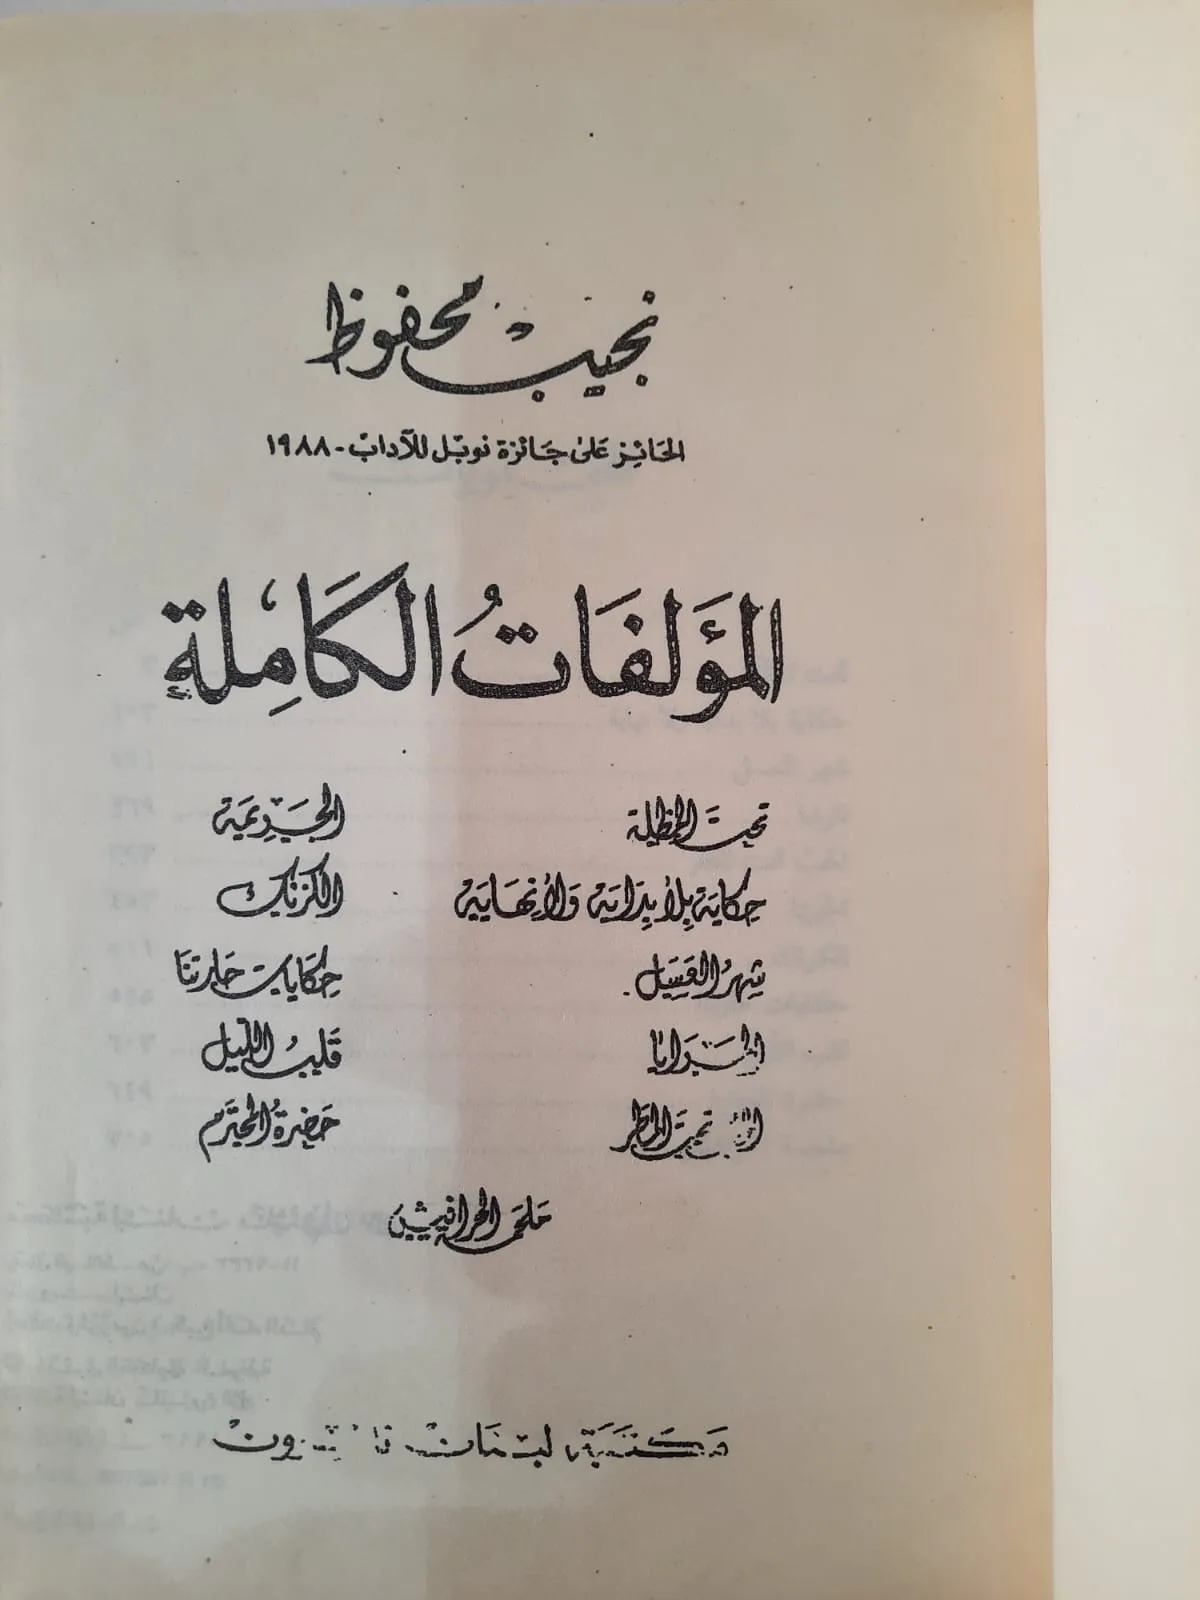 نجيب محفوظ
الحائز على جائزة نوبل للآداب - ١٩٨٨
المؤلفات الكاملة
تحت المظلة
الجريمة
حكاية بلا بداية ولا نهاية
الكرنك
شهر العسل
حكايات حارتنا
المرايا
قلب الليل
الحب تحت المطر
حضرة المحترم
ملحمة الحرافيش
مكتبة لبنان ناشرون